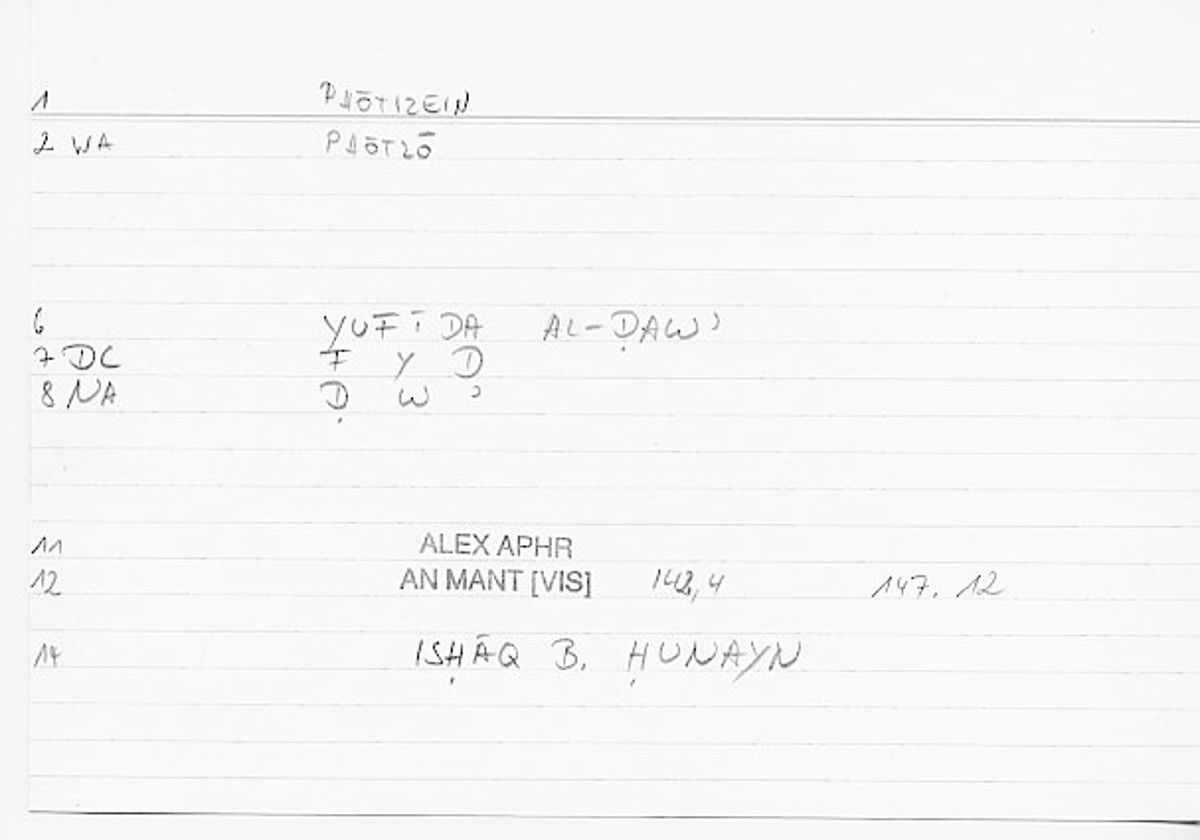 1 PHŌTIZEIN
2 WA PHŌTZŌ
6 YUFĪDA AL-ḌAWʾ
7 DC F Y D
8 NA Ḍ W ʾ
11 ALEX APHR
12 AN MANT [VIS] 142,4 147. 12
14 ISḤĀQ B. ḤUNAYN